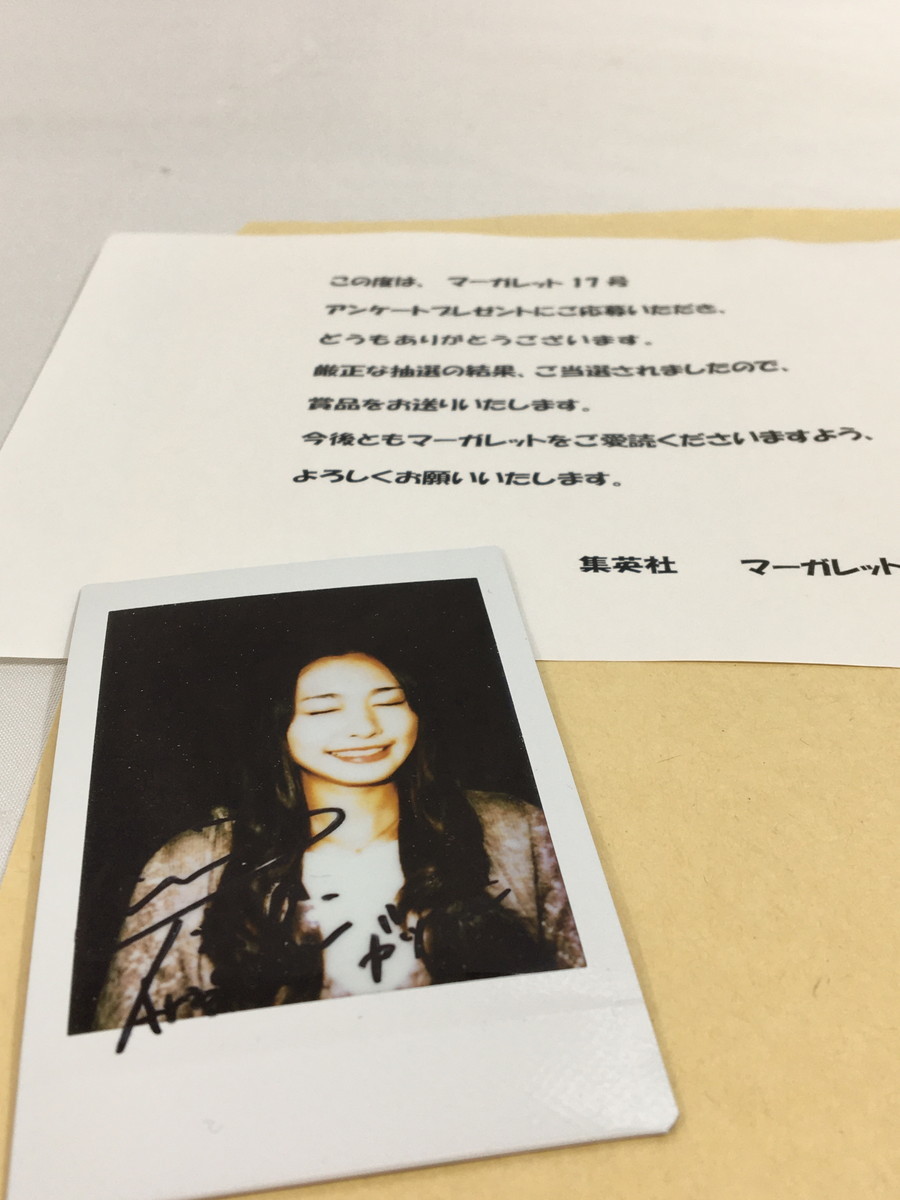 この度は、 マーガレット 17 号
アンケートプレゼントにご応募いただき、
どうもありがとうございます。
厳正な抽選の結果、ご当選されましたので、
賞品をお送りいたします。
今後ともマーガレットをご愛読くださいますよう、
よろしくお願いいたします。
集英社 マーガレット